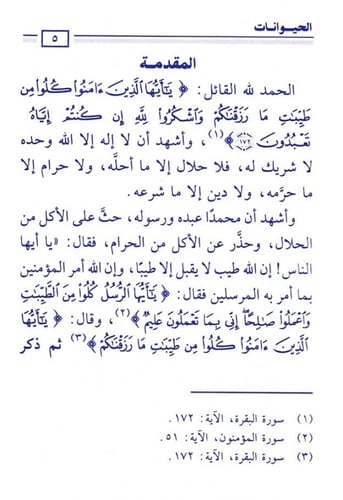 الحيــوانــات
٥
المقدمــة
الحمد لله القائل: ﴿ يَـٰٓأَيُّهَا ٱلَّذِينَ ءَامَنُوا۟ كُلُوا۟ مِن
طَيِّبَـٰتِ مَا رَزَقْنَـٰكُمْ وَٱشْكُرُوا۟ لِلَّهِ إِن كُنتُمْ إِيَّاهُ
تَعْبُدُونَ ١٧٢ ﴾(١)، وأشهد أن لا إله إلا الله وحده
لا شريك له، فلا حلال إلا ما أحلَّه، ولا حرام إلا
ما حرَّمه، ولا دين إلا ما شرعه.
وأشهد أن محمدًا عبده ورسوله، حثَّ على الأكل من
الحلال، وحذَّر عن الأكل من الحرام، فقال: «يا أيها
الناس! إن الله طيب لا يقبل إلا طيبًا، وإن الله أمر المؤمنين
بما أمر به المرسلين فقال: ﴿ يَـٰٓأَيُّهَا ٱلرُّسُلُ كُلُوا۟ مِنَ ٱلطَّيِّبَـٰتِ
وَٱعْمَلُوا۟ صَـٰلِحًا إِنِّى بِمَا تَعْمَلُونَ عَلِيمٌ ﴾(٢)، وقال: ﴿ يَـٰٓأَيُّهَا
ٱلَّذِينَ ءَامَنُوا۟ كُلُوا۟ مِن طَيِّبَـٰتِ مَا رَزَقْنَـٰكُمْ ﴾(٣) ثم ذكر
(١) سورة البقرة، الآية: ١٧٢.
(٢) سورة المؤمنون، الآية: ٥١.
(٣) سورة البقرة، الآية: ١٧٢.